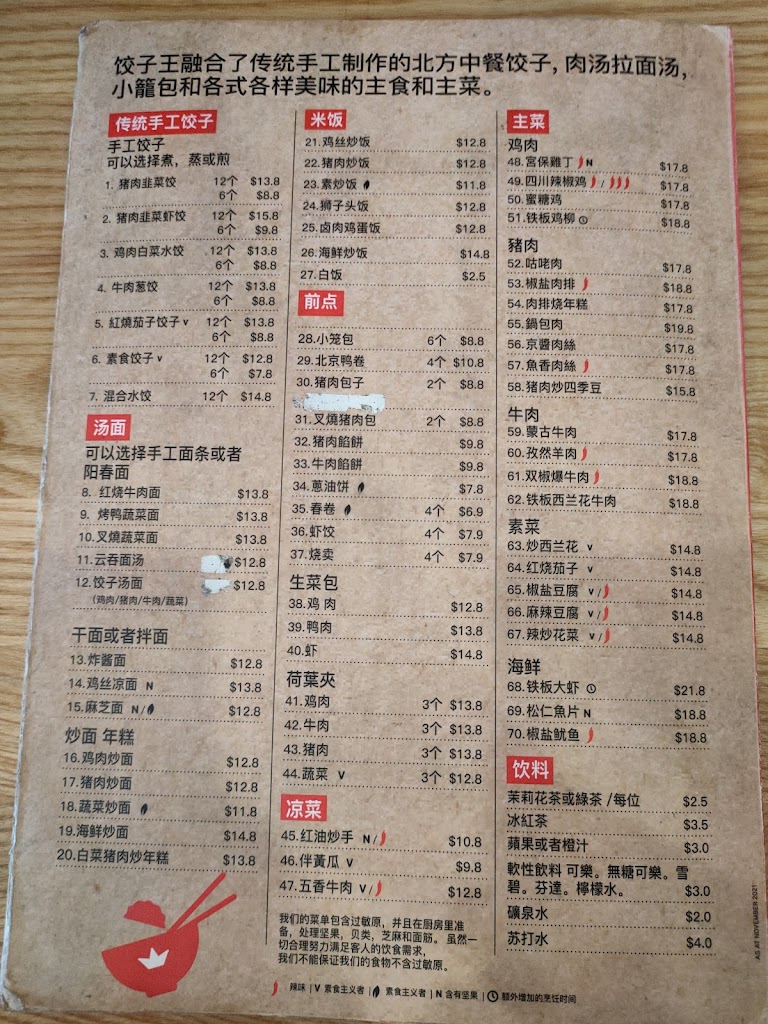 饺子王融合了传统手工制作的北方中餐饺子，肉汤拉面汤，
小籠包和各式各样美味的主食和主菜。
传统手工饺子
手工饺子
可以选择煮，蒸或煎
1. 猪肉韭菜饺 12个 $13.8
6个 $8.8
2. 猪肉韭菜虾饺 12个 $15.8
6个 $9.8
3. 鸡肉白菜水饺 12个 $13.8
6个 $8.8
4. 牛肉葱饺 12个 $13.8
6个 $8.8
5. 紅燒茄子饺子 V 12个 $13.8
6个 $8.8
6. 素食饺子 V 12个 $12.8
6个 $7.8
7. 混合水饺 12个 $14.8
汤面
可以选择手工面条或者
阳春面
8. 红烧牛肉面 $13.8
9. 烤鸭蔬菜面 $13.8
10.叉燒蔬菜面 $13.8
11.云吞面汤 $12.8
12.饺子汤面 $12.8
(鸡肉/猪肉/牛肉/蔬菜)
干面或者拌面
13.炸酱面 $12.8
14.鸡丝凉面 N $13.8
15.麻芝面 N/ $12.8
炒面 年糕
16.鸡肉炒面 $12.8
17.猪肉炒面 $12.8
18.蔬菜炒面 $11.8
19.海鲜炒面 $14.8
20.白菜猪肉炒年糕 $13.8
米饭
21.鸡丝炒饭 $12.8
22.猪肉炒饭 $12.8
23.素炒饭 $11.8
24.狮子头饭 $12.8
25.卤肉鸡蛋饭 $12.8
26.海鲜炒饭 $14.8
27.白饭 $2.5
前点
28.小笼包 6个 $8.8
29.北京鸭卷 4个 $10.8
30.猪肉包子 2个 $8.8
31.叉燒猪肉包 2个 $8.8
32.猪肉餡餅 $9.8
33.牛肉餡餅 $9.8
34.蔥油饼 $7.8
35.春卷 4个 $6.9
36.虾饺 4个 $7.9
37.烧卖 4个 $7.9
生菜包
38.鸡 肉 $12.8
39.鸭肉 $13.8
40.虾 $14.8
荷葉夾
41.鸡肉 3个 $13.8
42.牛肉 3个 $13.8
43.猪肉 3个 $13.8
44.蔬菜 V 3个 $12.8
凉菜
45.红油炒手 N/ $10.8
46.伴黃瓜 V $9.8
47.五香牛肉 V/ $12.8
我们的菜单包含过敏原，并且在厨房里准
备，处理坚果，贝类，芝麻和面筋。 虽然一
切合理努力满足客人的饮食需求，
我们不能保证我们的食物不含过敏原。
主菜
鸡肉
48.宮保雞丁 N $17.8
49.四川辣椒鸡 / $17.8
50.蜜糖鸡 $17.8
51.铁板鸡柳 $18.8
豬肉
52.咕咾肉 $17.8
53.椒盐肉排 $18.8
54.肉排烧年糕 $17.8
55.鍋包肉 $19.8
56.京醬肉絲 $17.8
57.魚香肉絲 $17.8
58.猪肉炒四季豆 $15.8
牛肉
59.蒙古牛肉 $17.8
60.孜然羊肉 $17.8
61.双椒爆牛肉 $18.8
62.铁板西兰花牛肉 $18.8
素菜
63.炒西兰花 V $14.8
64.红烧茄子 V $14.8
65.椒盐豆腐 V/ $14.8
66.麻辣豆腐 V/ $14.8
67.辣炒花菜 V/ $14.8
海鲜
68.铁板大虾 $21.8
69.松仁魚片 N $18.8
70.椒盐鱿鱼 $18.8
饮料
茉莉花茶或綠茶 /每位 $2.5
冰紅茶 $3.5
蘋果或者橙汁 $3.0
軟性飲料 可樂。無糖可樂。雪
碧。芬達。檸檬水。 $3.0
礦泉水 $2.0
苏打水 $4.0
辣味 | V 素食主义者 | 素食主义者 | N 含有坚果 | 额外增加的烹饪时间
AS AT NOVEMBER 2021